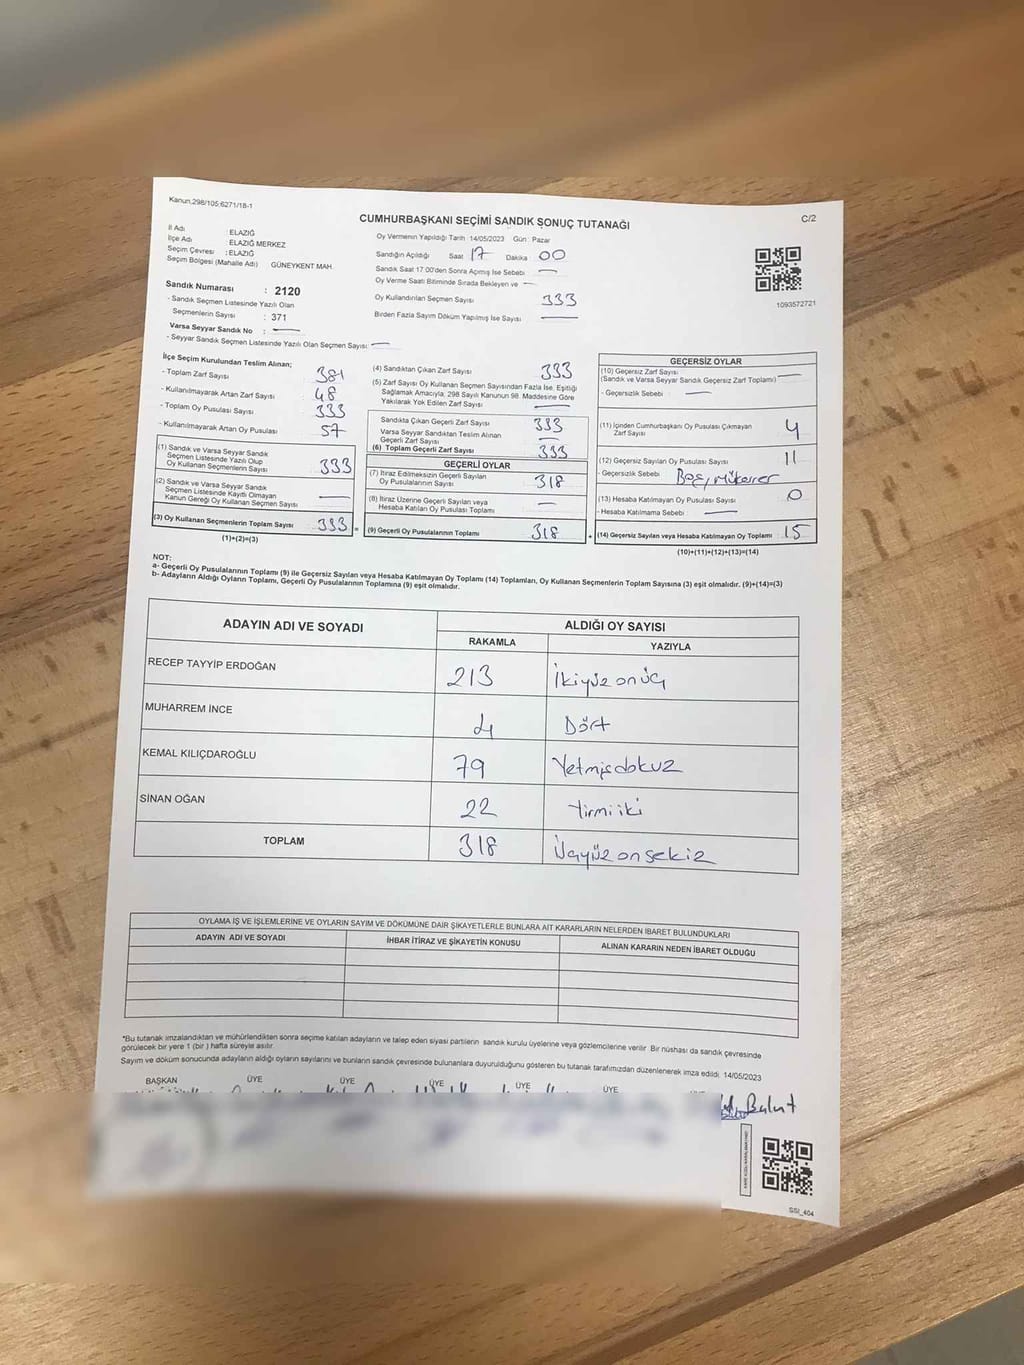 Kanun,298/105;6271/18-1
CUMHURBAŞKANI SEÇİMİ SANDIK SONUÇ TUTANAĞI
C/2
İl Adı : ELAZIĞ
İlçe Adı : ELAZIĞ MERKEZ
Seçim Çevresi : ELAZIĞ
Seçim Bölgesi (Mahalle Adı) GÜNEYKENT MAH.
Oy Vermenin Yapıldığı Tarih :14/05/2023 Gün : Pazar
Sandığın Açıldığı Saat 17 Dakika 00
Sandık Saat 17.00'den Sonra Açmış İse Sebebi —
Oy Verme Saati Bitiminde Sırada Bekleyen ve —
Oy Kullandırılan Seçmen Sayısı 333
Birden Fazla Sayım Döküm Yapılmış İse Sayısı —
1093572721
Sandık Numarası : 2120
- Sandık Seçmen Listesinde Yazılı Olan
Seçmenlerin Sayısı : 371
Varsa Seyyar Sandık No : —
- Seyyar Sandık Seçmen Listesinde Yazılı Olan Seçmen Sayısı: —
İlçe Seçim Kurulundan Teslim Alınan;
- Toplam Zarf Sayısı 381
- Kullanılmayarak Artan Zarf Sayısı 48
- Toplam Oy Pusulası Sayısı 333
- Kullanılmayarak Artan Oy Pusulası 57
(1) Sandık ve Varsa Seyyar Sandık
Seçmen Listesinde Yazılı Olup
Oy Kullanan Seçmenlerin Sayısı 333
(2) Sandık ve Varsa Seyyar Sandık
Seçmen Listesinde Kayıtlı Olmayan
Kanun Gereği Oy Kullanan Seçmen Sayısı —
(3) Oy Kullanan Seçmenlerin Toplam Sayısı 333 =
(1)+(2)=(3)
(4) Sandıktan Çıkan Zarf Sayısı 333
(5) Zarf Sayısı Oy Kullanan Seçmen Sayısından Fazla İse, Eşitliği
Sağlamak Amacıyla, 298 Sayılı Kanunun 98. Maddesine Göre
Yakılarak Yok Edilen Zarf Sayısı —
Sandıkta Çıkan Geçerli Zarf Sayısı 333
Varsa Seyyar Sandıktan Teslim Alınan
Geçerli Zarf Sayısı —
(6) Toplam Geçerli Zarf Sayısı 333
GEÇERLİ OYLAR
(7) İtiraz Edilmeksizin Geçerli Sayılan
Oy Pusulalarının Sayısı 318
(8) İtiraz Üzerine Geçerli Sayılan veya
Hesaba Katılan Oy Pusulası Toplamı —
(9) Geçerli Oy Pusulalarının Toplamı 318 +
GEÇERSİZ OYLAR
(10) Geçersiz Zarf Sayısı
(Sandık ve Varsa Seyyar Sandık Geçersiz Zarf Toplamı) —
- Geçersizlik Sebebi : —
(11) İçinden Cumhurbaşkanı Oy Pusulası Çıkmayan
Zarf Sayısı 4
(12) Geçersiz Sayılan Oy Pusulası Sayısı 11
- Geçersizlik Sebebi Boş, Mükerrer
(13) Hesaba Katılmayan Oy Pusulası Sayısı 0
- Hesaba Katılmama Sebebi : —
(14) Geçersiz Sayılan veya Hesaba Katılmayan Oy Toplamı 15
(10)+(11)+(12)+(13)=(14)
NOT:
a- Geçerli Oy Pusulalarının Toplamı (9) ile Geçersiz Sayılan veya Hesaba Katılmayan Oy Toplamı (14) Toplamları, Oy Kullanan Seçmenlerin Toplam Sayısına (3) eşit olmalıdır. (9)+(14)=(3)
b- Adayların Aldığı Oyların Toplamı, Geçerli Oy Pusulalarının Toplamına (9) eşit olmalıdır.
ADAYIN ADI VE SOYADI
ALDIĞI OY SAYISI
RAKAMLA YAZIYLA
RECEP TAYYİP ERDOĞAN 213 İkiyüz onüç
MUHARREM İNCE 4 Dört
KEMAL KILIÇDAROĞLU 79 Yetmişdokuz
SİNAN OĞAN 22 Yirmiiki
TOPLAM 318 Üçyüz onsekiz
OYLAMA İŞ VE İŞLEMLERİNE VE OYLARIN SAYIM VE DÖKÜMÜNE DAİR ŞİKAYETLERLE BUNLARA AİT KARARLARIN NELERDEN İBARET BULUNDUKLARI
ADAYIN ADI VE SOYADI
İHBAR İTİRAZ VE ŞİKAYETİN KONUSU
ALINAN KARARIN NEDEN İBARET OLDUĞU
*Bu tutanak imzalandıktan ve mühürlendikten sonra seçime katılan adayların ve talep eden siyasi partilerin sandık kurulu üyelerine veya gözlemcilerine verilir. Bir nüshası da sandık çevresinde
görülecek bir yere 1 (bir ) hafta süreyle asılır.
Sayım ve döküm sonucunda adayların aldığı oyların sayılarını ve bunların sandık çevresinde bulunanlara duyurulduğunu gösteren bu tutanak tarafımızdan düzenlenerek imza edildi. 14/05/2023
BAŞKAN ÜYE ÜYE ÜYE ÜYE ÜYE
Bulut
SSI_404